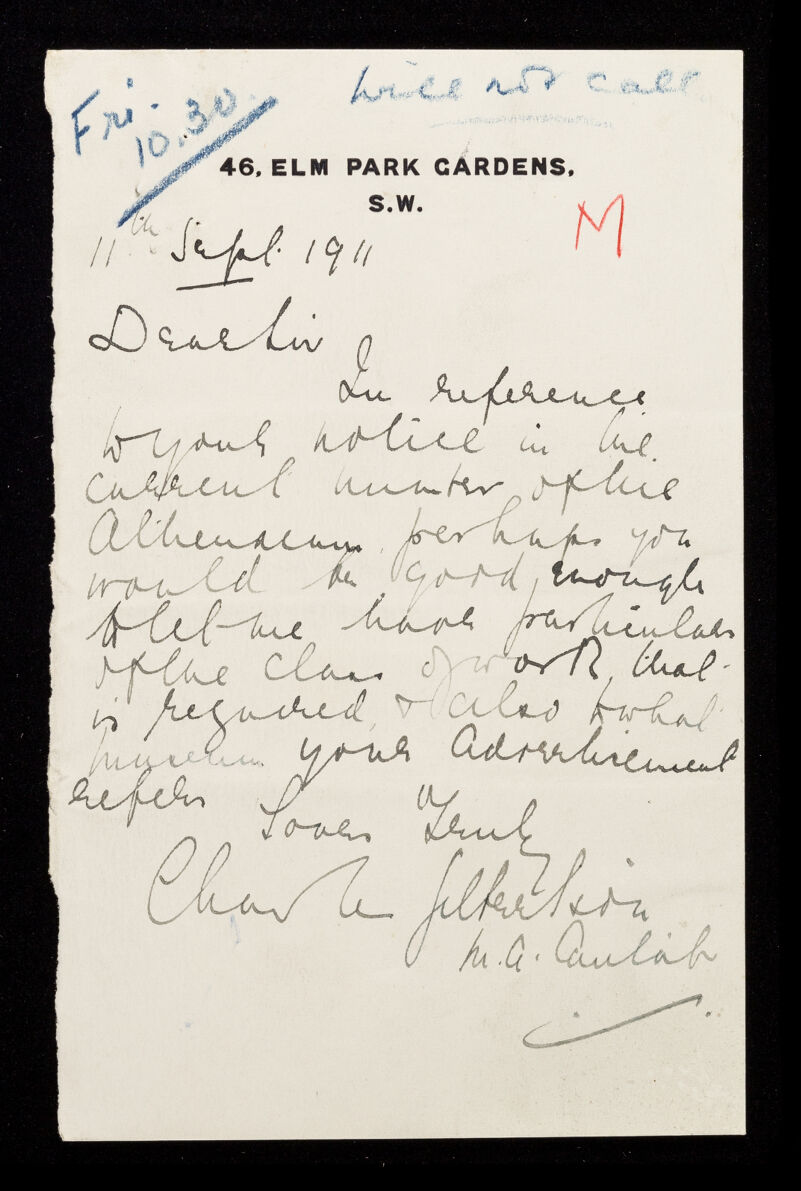 Fri. 10.30.
will not call
46, ELM PARK GARDENS,
S.W.
M
11th Sept. 1911
Dear Sir
In reference
to your notice in the
current number of the
Athenaeum, perhaps you
would be good enough
to let me have particulars
of the class of work that
is required, & also to what
museum your advertisement
refers
Yours Truly
Charles Gilbertson
M.A. Cantab